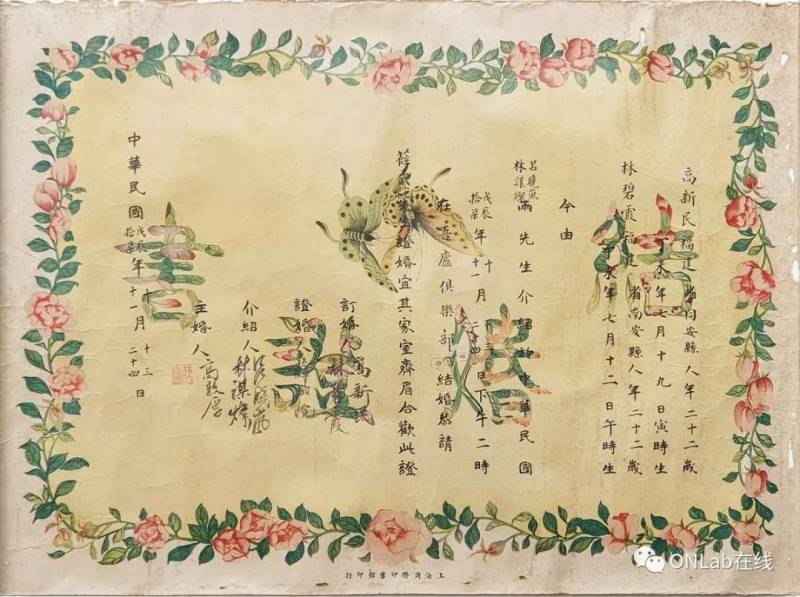 高新民福建省同安縣人年二十二歲
丁未年七月十九日寅時生
林碧霞福建省南安縣人年二十二歲
丁未年七月十二日午時生
今由
呂曉嵐
林謀燦
兩先生介紹於中華民國
戊辰
拾柒年十
十一月十三
二十四日下午二時
在五廬俱樂部結婚恭請
先生證婚宜其家室齊眉合歡此證
訂婚人高新民
林碧霞
證婚人
介紹人
林謀燦
主婚人高敦厚
中華民國戊辰
拾柒年十
十一月十三
二十四日
上海商務印書館印行
ONLab在线